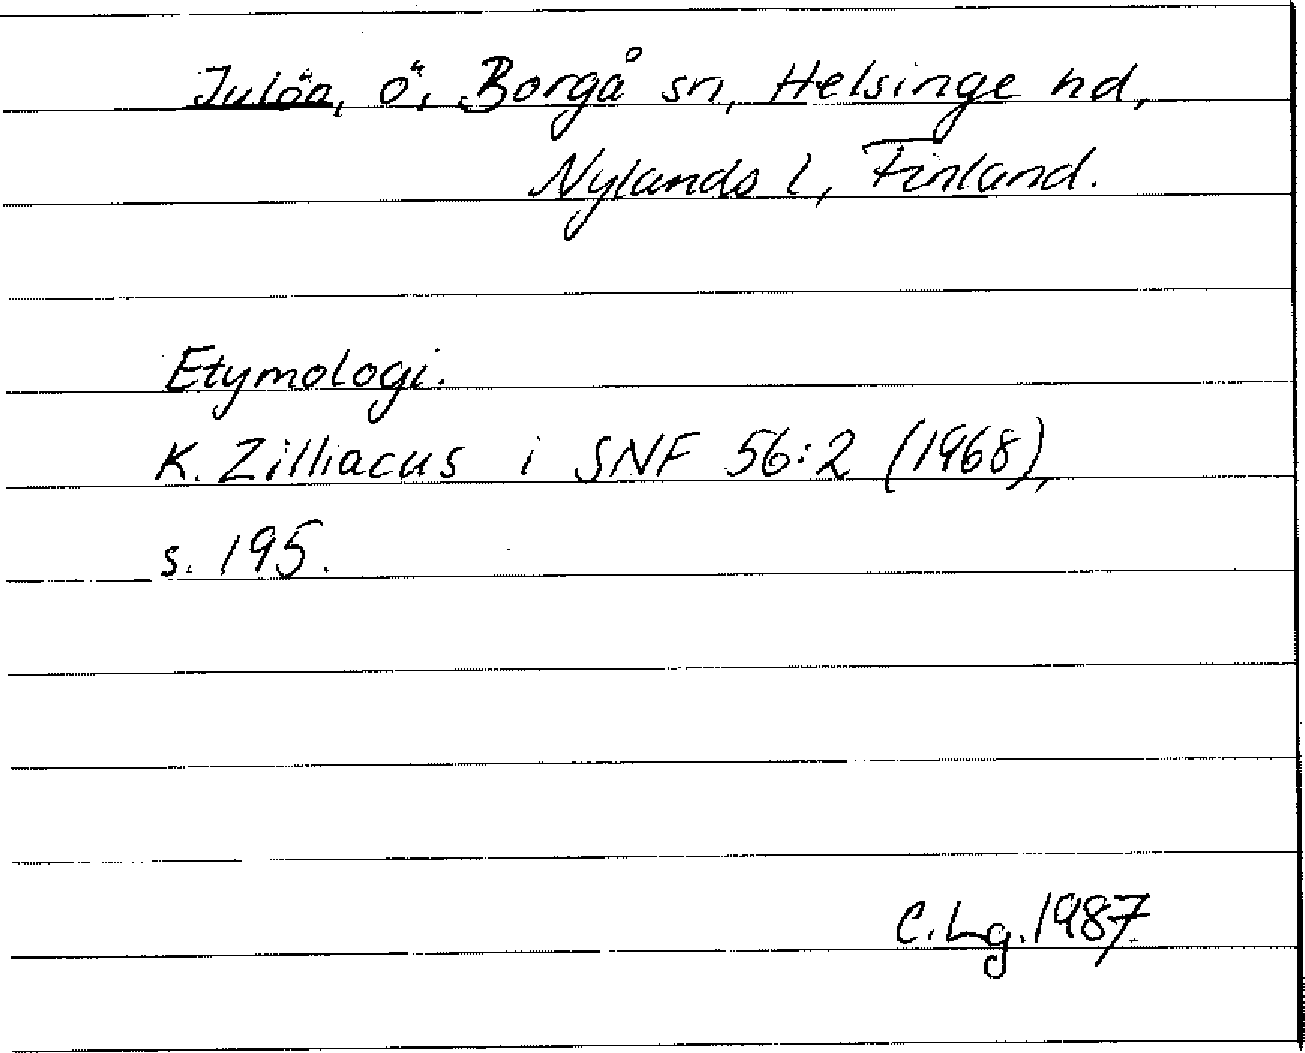 Julöa, ö, Borgå sn, Helsinge hd,
Nylands l, Finland.
Etymologi.
K. Zilliacus i SNF 56:2 (1968),
s. 195.
C. Lg. 1987